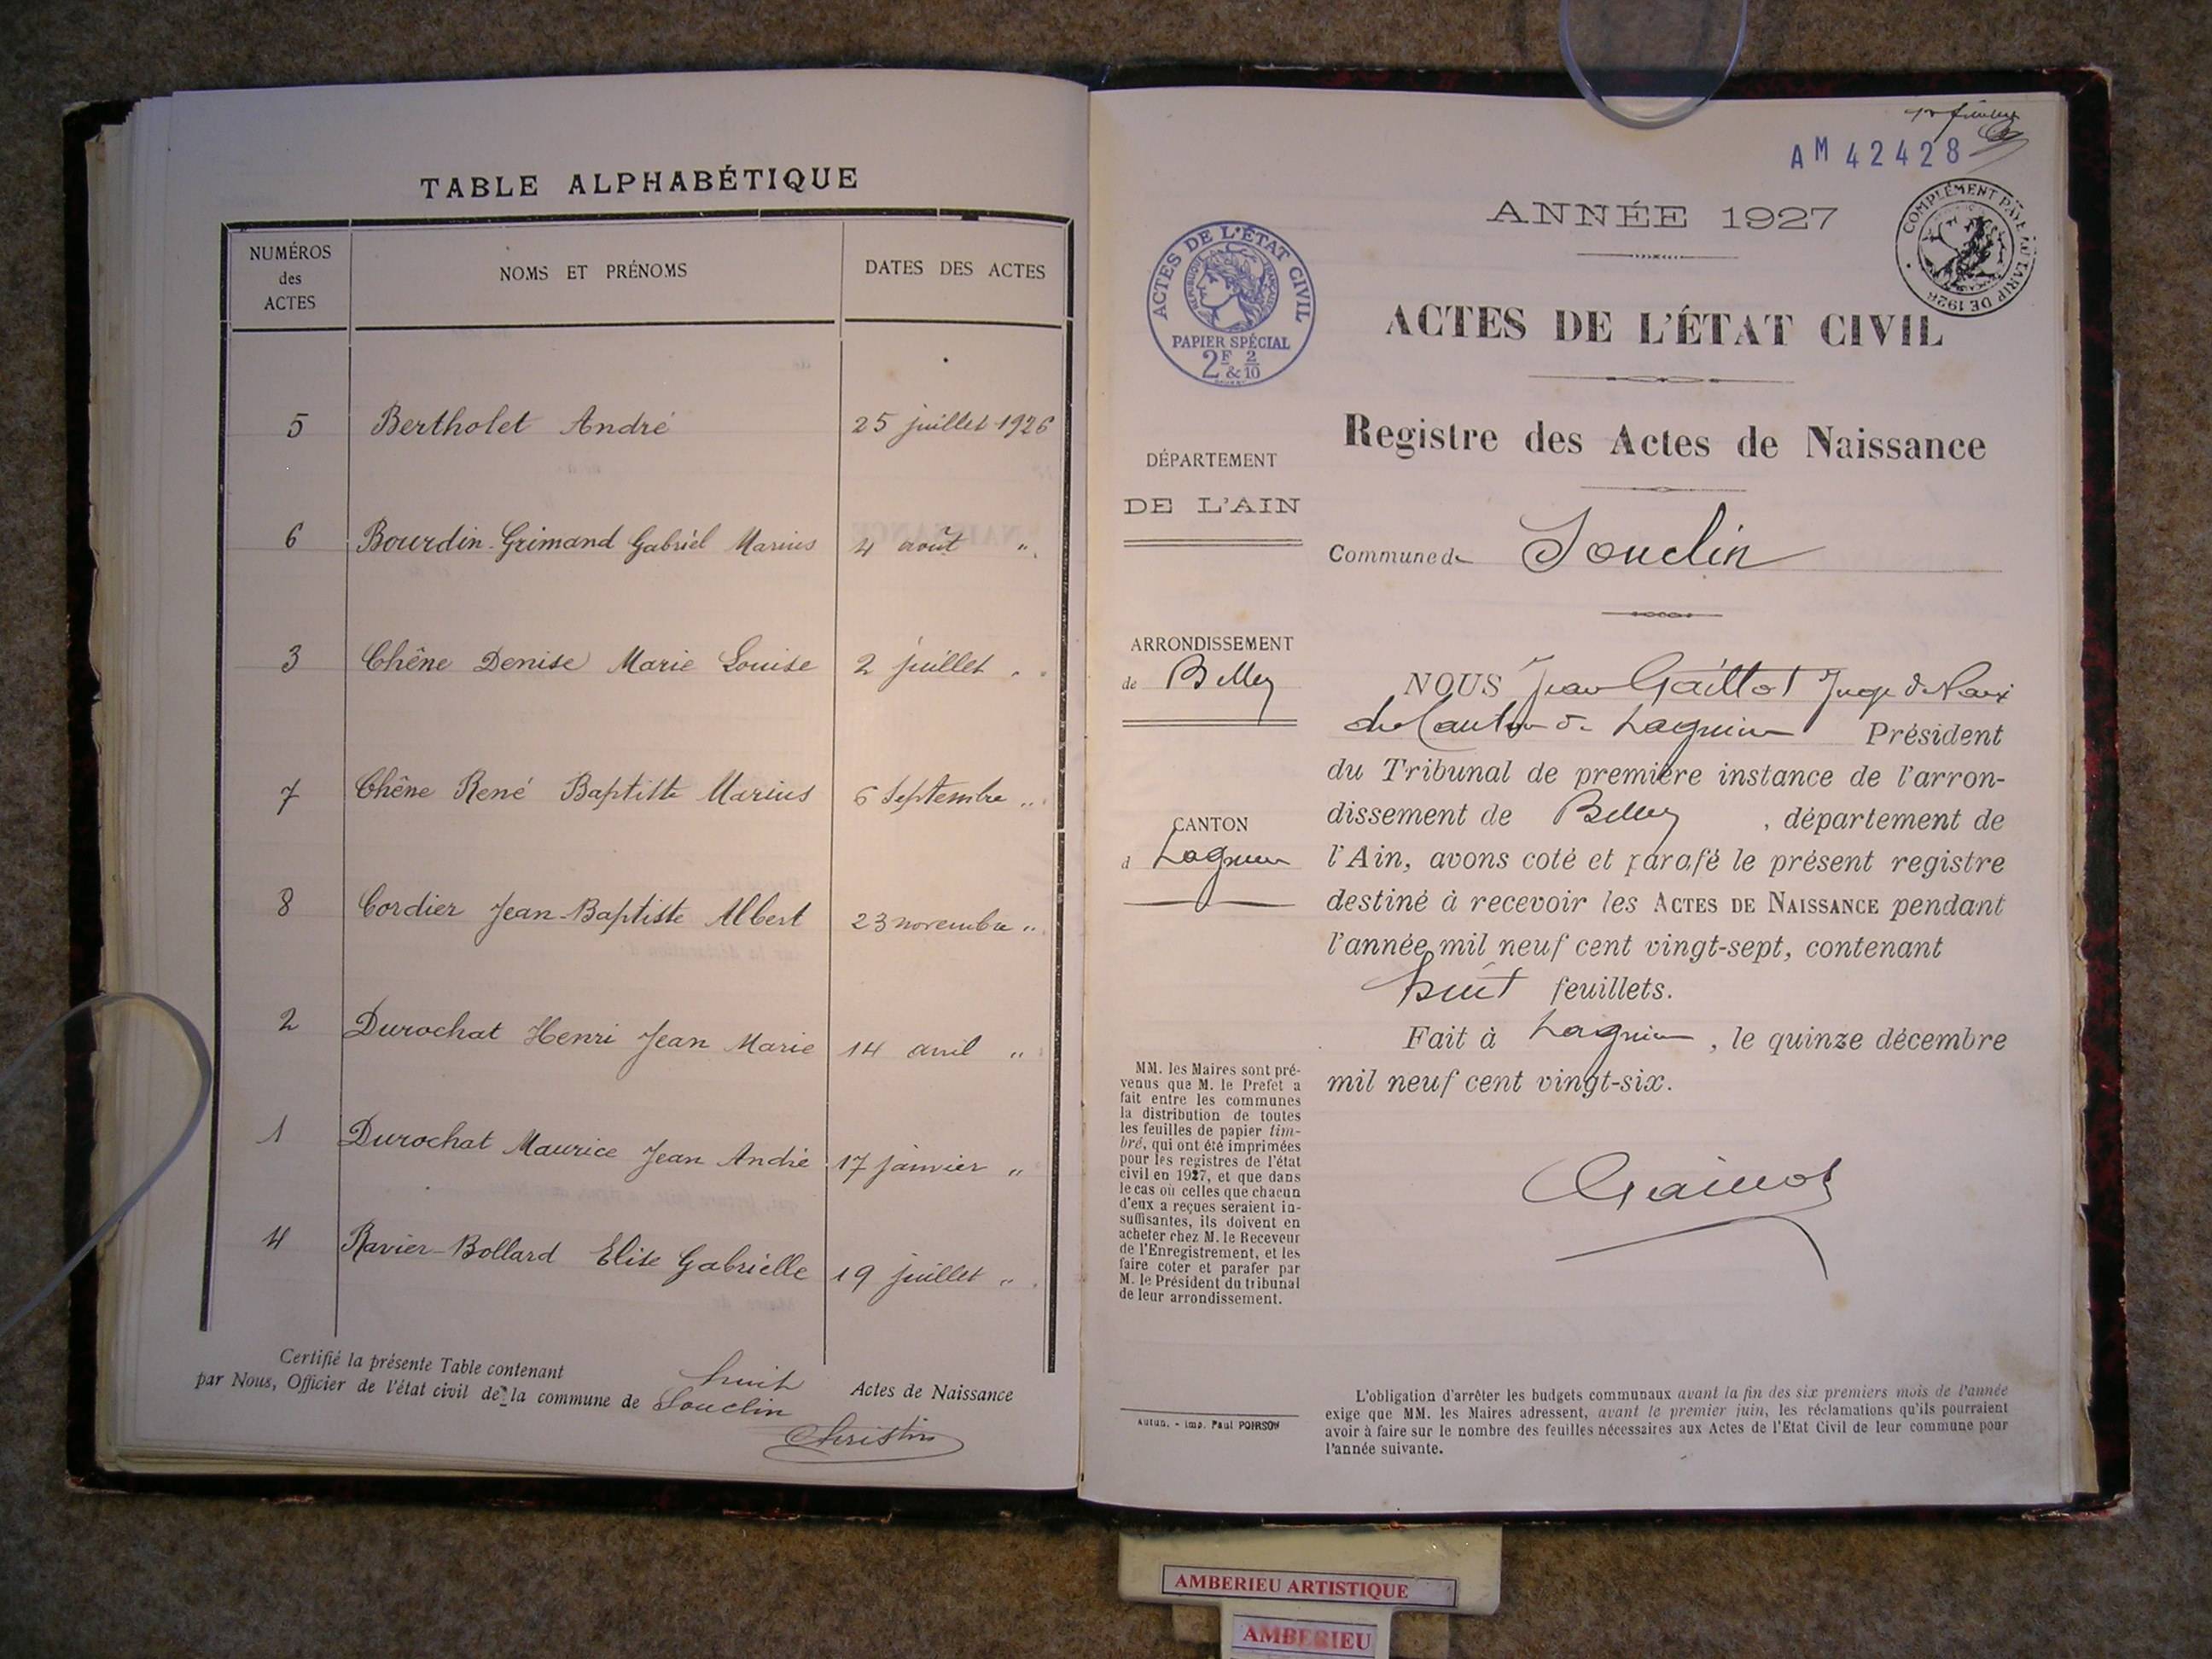 TABLE ALPHABÉTIQUE
NUMÉROS des ACTES
NOMS ET PRÉNOMS
DATES DES ACTES
5 Bertholet André 25 juillet 1926
6 Bourdin-Grimand Gabriel Marius 4 août "
3 Chêne Denise Marie Louise 2 juillet "
7 Chêne René Baptiste Marius 6 Septembre "
8 Cordier Jean-Baptiste Albert 23 novembre "
2 Durochat Henri Jean Marie 14 avril "
1 Durochat Maurice Jean André 17 janvier "
4 Ravier-Bollard Elise Gabrielle 19 juillet "
Certifié la présente Table contenant huit Actes de Naissance
par Nous, Officier de l'état civil de la commune de Souclin
Christin
AM 42428
COMPLÉMENT PAYÉ AU TARIF DE 1926
ANNÉE 1927
ACTES DE L'ÉTAT CIVIL
RÉPUBLIQUE FRANÇAISE
PAPIER SPÉCIAL
2F & 2/10
ACTES DE L'ÉTAT CIVIL
Registre des Actes de Naissance
DÉPARTEMENT
DE L'AIN
Commune de Souclin
ARRONDISSEMENT
de Belley
CANTON
d Lagnieu
NOUS Jean Gaillot Juge de Paix
du Canton de Lagnieu Président
du Tribunal de première instance de l'arron-
dissement de Belley, département de
l'Ain, avons coté et parafé le présent registre
destiné à recevoir les ACTES DE NAISSANCE pendant
l'année mil neuf cent vingt-sept, contenant
huit feuillets.
Fait à Lagnieu, le quinze décembre
mil neuf cent vingt-six.
MM. les Maires sont pré-
venus que M. le Préfet a
fait entre les communes
la distribution de toutes
les feuilles de papier tim-
bré, qui ont été imprimées
pour les registres de l'état
civil en 1927, et que dans
le cas où celles que chacun
d'eux a reçues seraient in-
suffisantes, ils doivent en
acheter chez M. le Receveur
de l'Enregistrement, et les
faire coter et parafer par
M. le Président du tribunal
de leur arrondissement.
Autun. - Imp. Paul POIRSON
L'obligation d'arrêter les budgets communaux avant la fin des six premiers mois de l'année
exige que MM. les Maires adressent, avant le premier juin, les réclamations qu'ils pourraient
avoir à faire sur le nombre des feuilles nécessaires aux Actes de l'Etat Civil de leur commune pour
l'année suivante.
AMBERIEU ARTISTIQUE
AMBERIEU